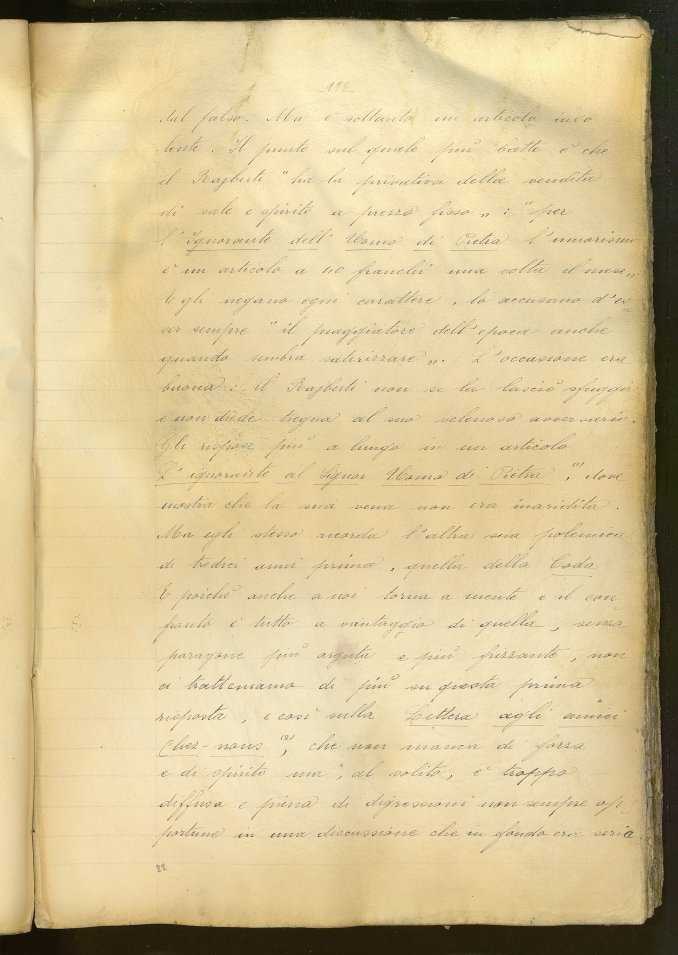 -198-
sul falso. Ma è soltanto un articolo inso
lente. Il punto sul quale più batte è che
il Rajberti "ha la privativa della vendita
di sale e spirito a prezzo fisso„ : "per
l'Ignorante dell'Uomo di Pietra l'umorismo
è un articolo a 40 franchi una volta il mese„
E gli negano ogni carattere, lo accusano d'es-
ser sempre "il piaggiatore dell'epoca anche
quando sembra satirizzare„. L'occasione era
buona: il Rajberti non se la lasciò sfuggire
e non diede tregua al suo velenoso avversario.
Gli rispose più a lungo in un articolo
L'ignorante al Signor Uomo di Pietra,⁽¹⁾ dove
mostra che la sua vena non era inaridita.
Ma egli stesso ricorda l'altra sua polemica
di tredici anni prima, quella della Coda
E poichè anche a noi torna a mente e il con
fronto è tutto a vantaggio di quella, senza
paragone più arguta e più frizzante, non
ci tratteniamo di più su questa prima
risposta, e così sulla Lettera agli amici
Chez-nous⁽²⁾, che non manca di forza
e di spirito ma, al solito, è troppo
diffusa e piena di digressioni non sempre op-
portune in una discussione che in fondo era seria.
22